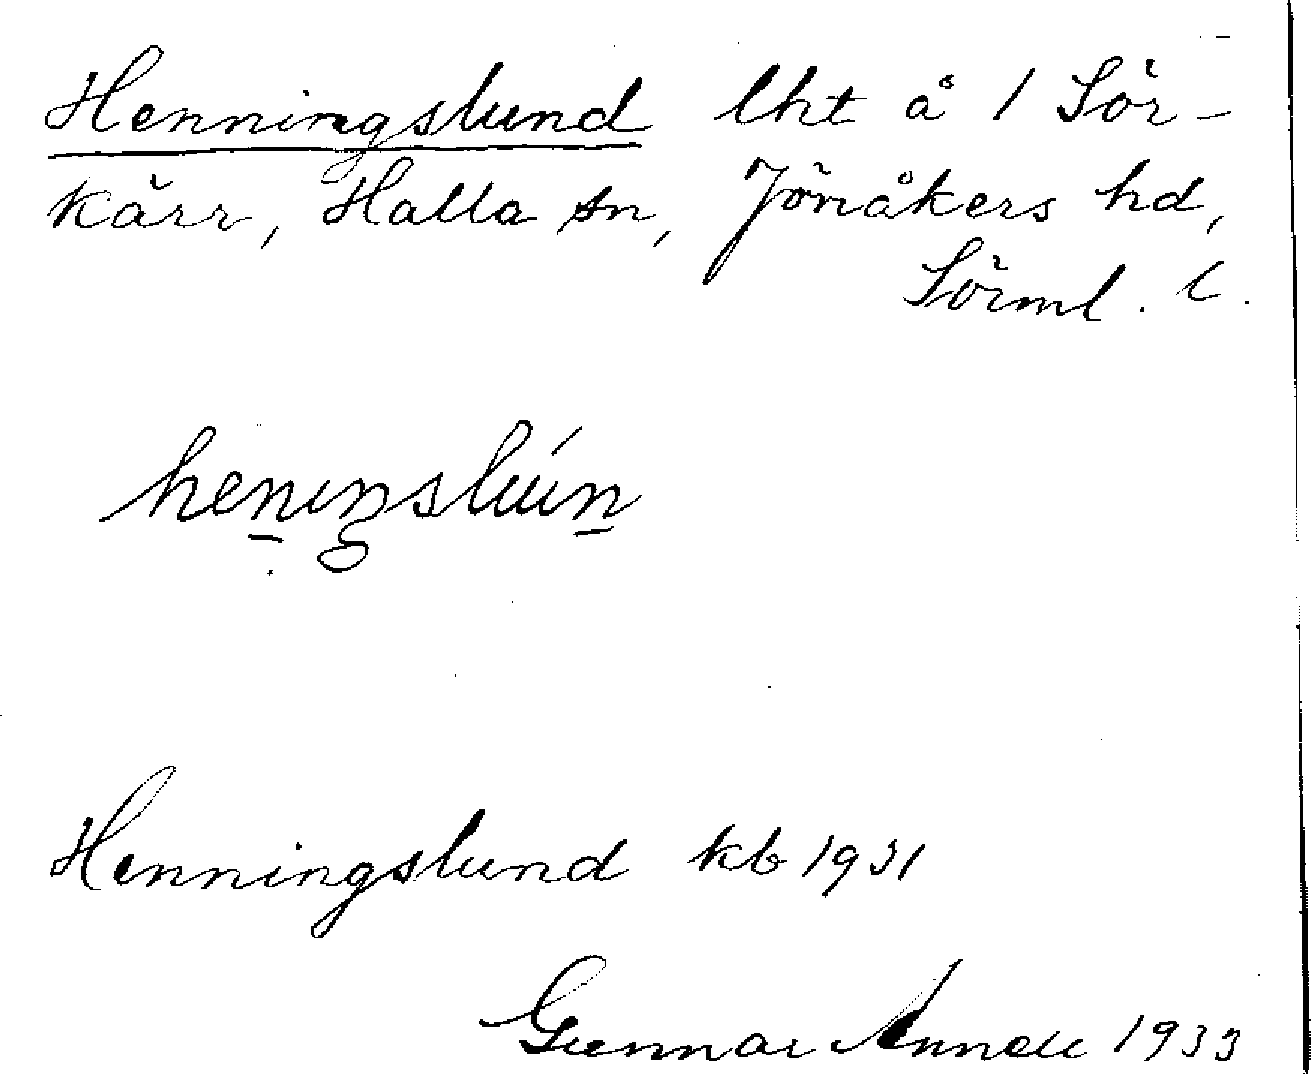 Henningslund lht å 1 Sör-
kärr, Halla sn, Jönåkers hd,
Sörml. l.
henıŋslún
Henningslund kb 1931
Gunnar 1933